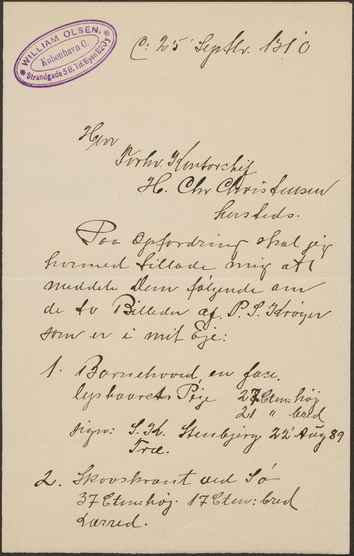 WILLIAM OLSEN.
København C.
Strandgade 58. Tlf. Byen
C: 25 Septbr. 1910
Herr
Kontorchef
H. Chr Christensen
hersteds.
Paa Opfordring skal jeg
hermed tillade mig at
meddele Dem følgende om
de to Billeder af P. S. Krøyer
som er i mit Eje:
1. Barnehoved, en face,
lyshaaret Pige 27 Ctm: høj
21 " bred
sign: S. K. Stenbjerg 22 Aug 89
Træ.
2. Skovskrænt ved Sø
37 Ctm: høj. 17 Ctm: bred
Lærred.